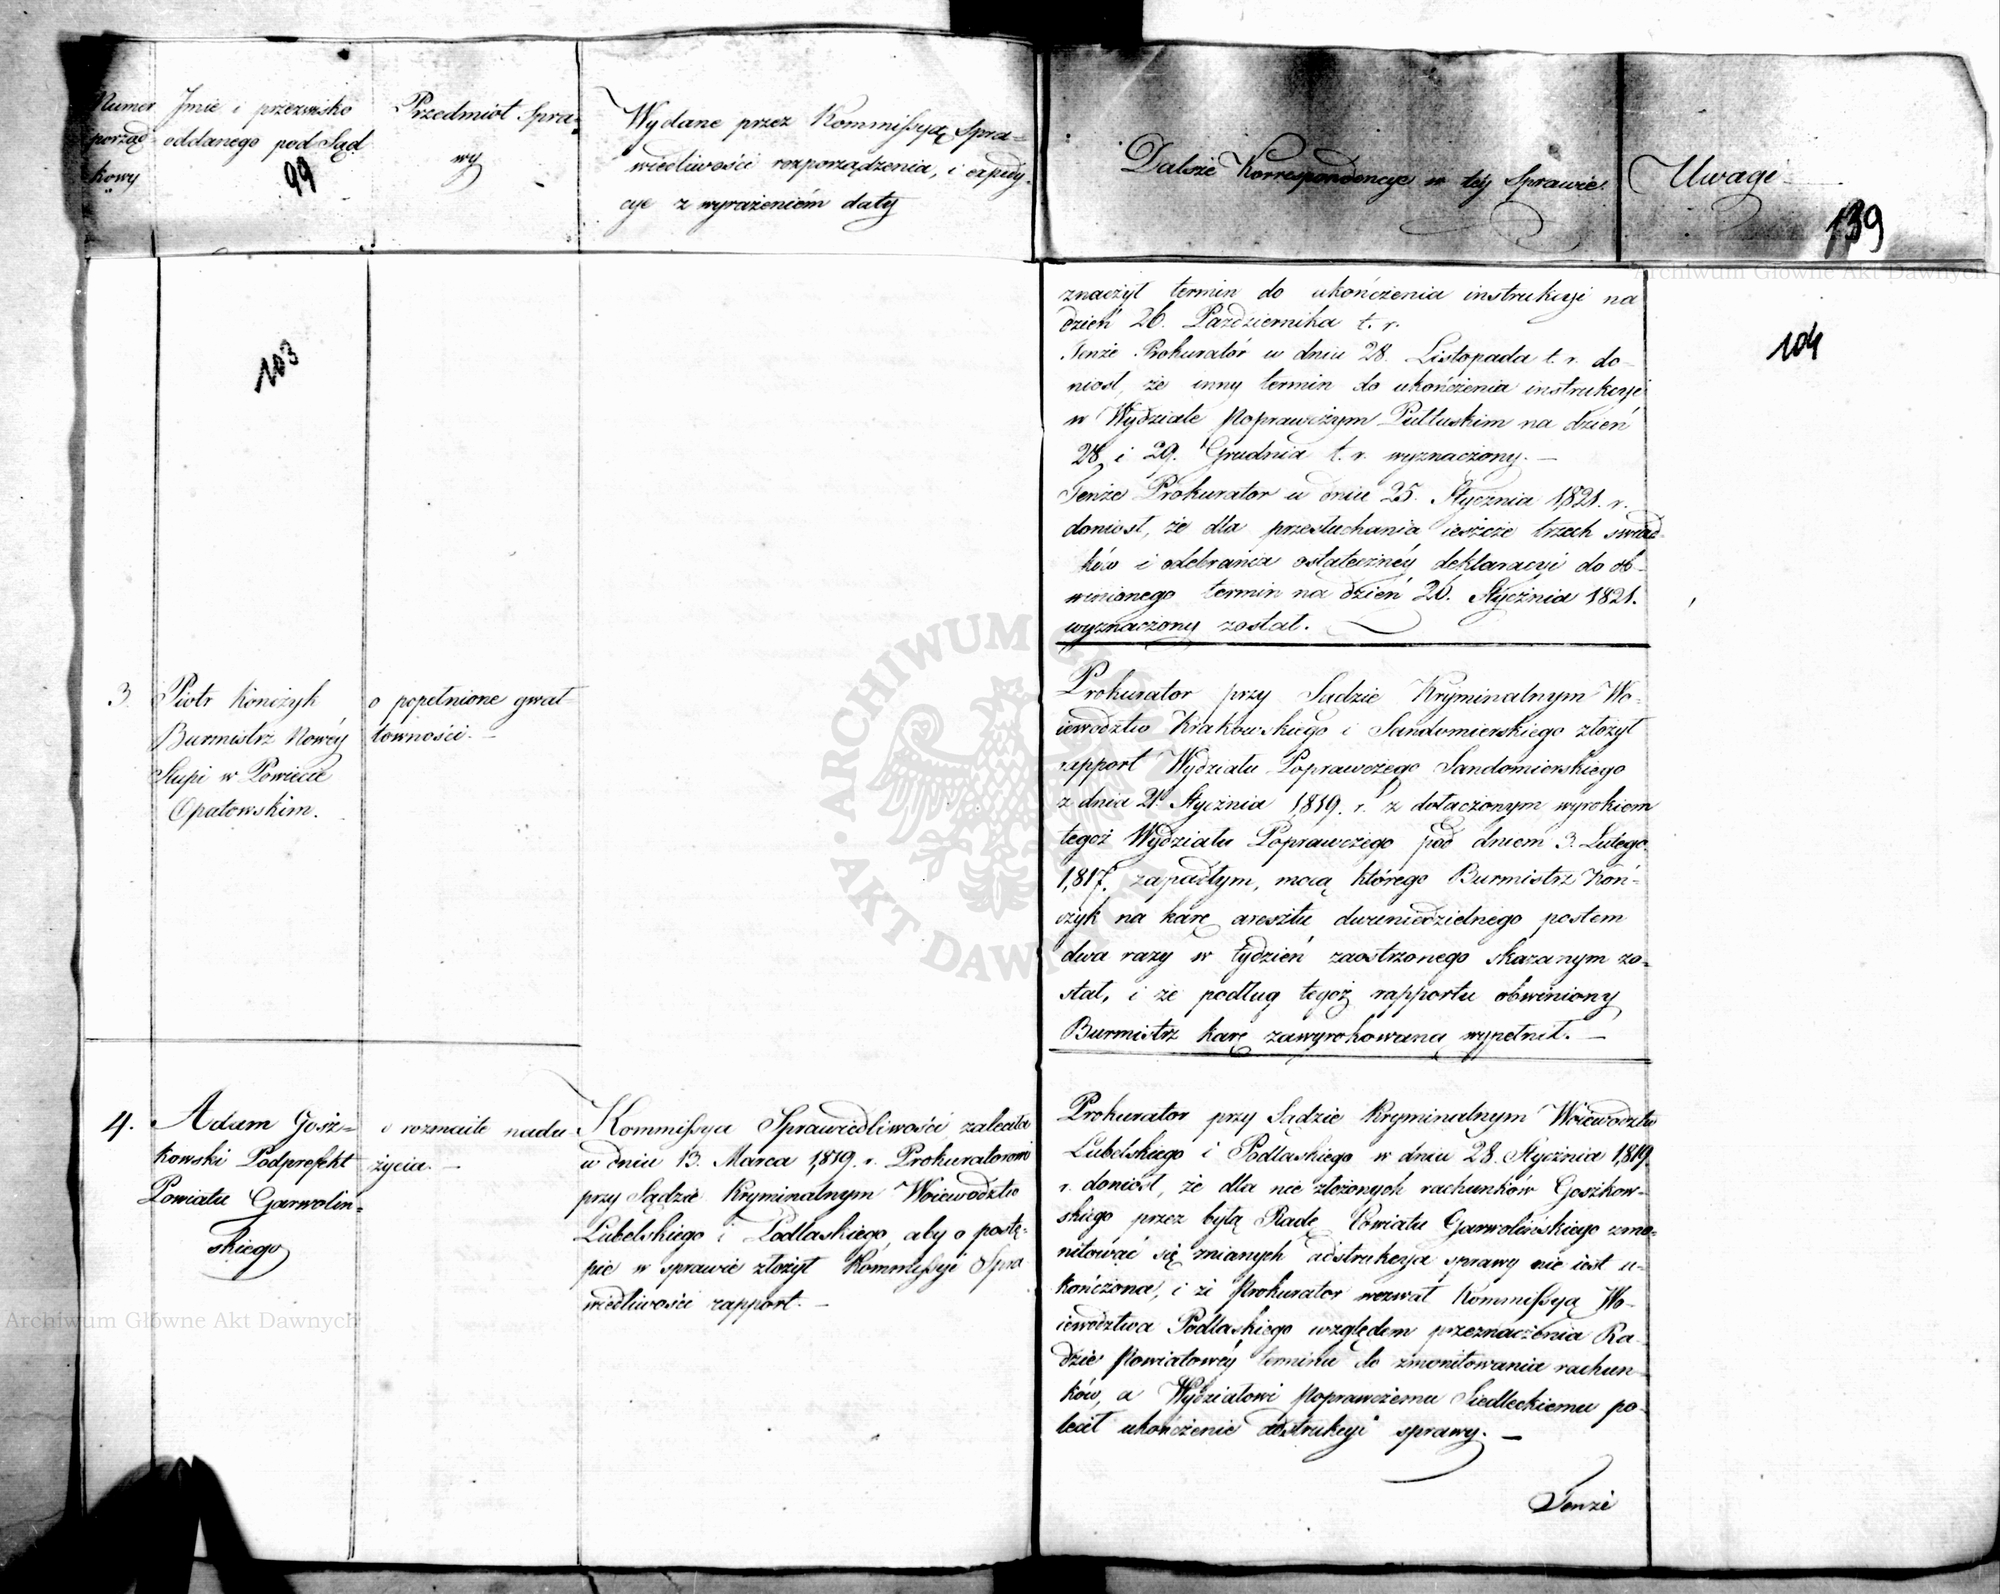 Numer
porząd
kowy
Jmie i przezwisko
oddanego pod Sąd
99
Przedmiot Spra-
wy
Wydane przez Kommissyą Spra-
wiedliwości rozporządzenia, i expedy-
cye z wyrażeniem daty
Dalsze Korrespondencye w téy Sprawie.
Uwagi
139
Archiwum Główne Akt Dawnych
103
104
znaczył termin do ukończenia instrukcyi na
dzień 26. Października t. r.
Tenże Prokurator w dniu 28. Listopada t. r. do-
niosł, że inny termin do ukończenia instrukcyi
w Wydziale Poprawczym Pułtuskim na dzień
28. i 29. Grudnia t. r. wyznaczony. —
Tenże Prokurator w dniu 25. Stycznia 1821. r.
doniosł, że dla przesłuchania ieszcze trzech świad-
ków i odebrania ostateczney deklaracyi do ob-
winionego termin na dzień 26. Stycznia 1821.
wyznaczony został.
3.
Piotr Kończyk
Burmistrz Nowéy
Słupi w Powiecie
Opatowskim.
o popełnione gwał-
towności. —
Prokurator przy Sądzie Kryminalnym Wo-
iewodztw Krakowskiego i Sandomierskiego złożył
rapport Wydziału Poprawczego Sandomierskiego
z dnia 21 Stycznia 1819. r. z dołączonym wyrokiem
tegoż Wydziału Poprawczego pod dniem 3. Lutego
1817. zapadłym, mocą którego Burmistrz Koń-
czyk na karę aresztu dwuniedzielnego postem
dwa razy w tydzień zaostrzonego skazanym zo-
stał, i że podług tegoż rapportu obwiniony
Burmistrz karę zawyrokowaną wypełnił. —
4.
Adam Gosz-
kowski Podprefekt
Powiatu Garwoliń-
skiego
o rozmaite nadu-
życia. —
Kommissya Sprawiedliwości zaleciła
w dniu 13. Marca 1819. r. Prokuratorowi
przy Sądzie Kryminalnym Woiewodztw
Lubelskiego i Podlaskiego, aby o postę-
pie w sprawie złożył Kommissyi Spra
wiedliwości rapport. —
Prokurator przy Sądzie Kryminalnym Woiewodztw
Lubelskiego i Podlaskiego w dniu 28. Stycznia 1819.
r. doniosł, że dla nie złożonych rachunków Goszkow-
skiego przez byłą Radę Powiatu Garwolińskiego zmo-
nitować się mianych adstrukcya sprawy nie iest u-
kończona, i że Prokurator wezwał Kommissyą Wo-
iewodztwa Podlaskiego względem przeznaczenia Ra-
dzie Powiatowéy terminu do zmonitowania rachun-
ków, a Wydziałowi Poprawczemu Siedleckiemu po-
lecił ukończenie adstrukcyi sprawy. —
Tenże
ARCHIWUM
AKT DAWNYCH
Archiwum Główne Akt Dawnych